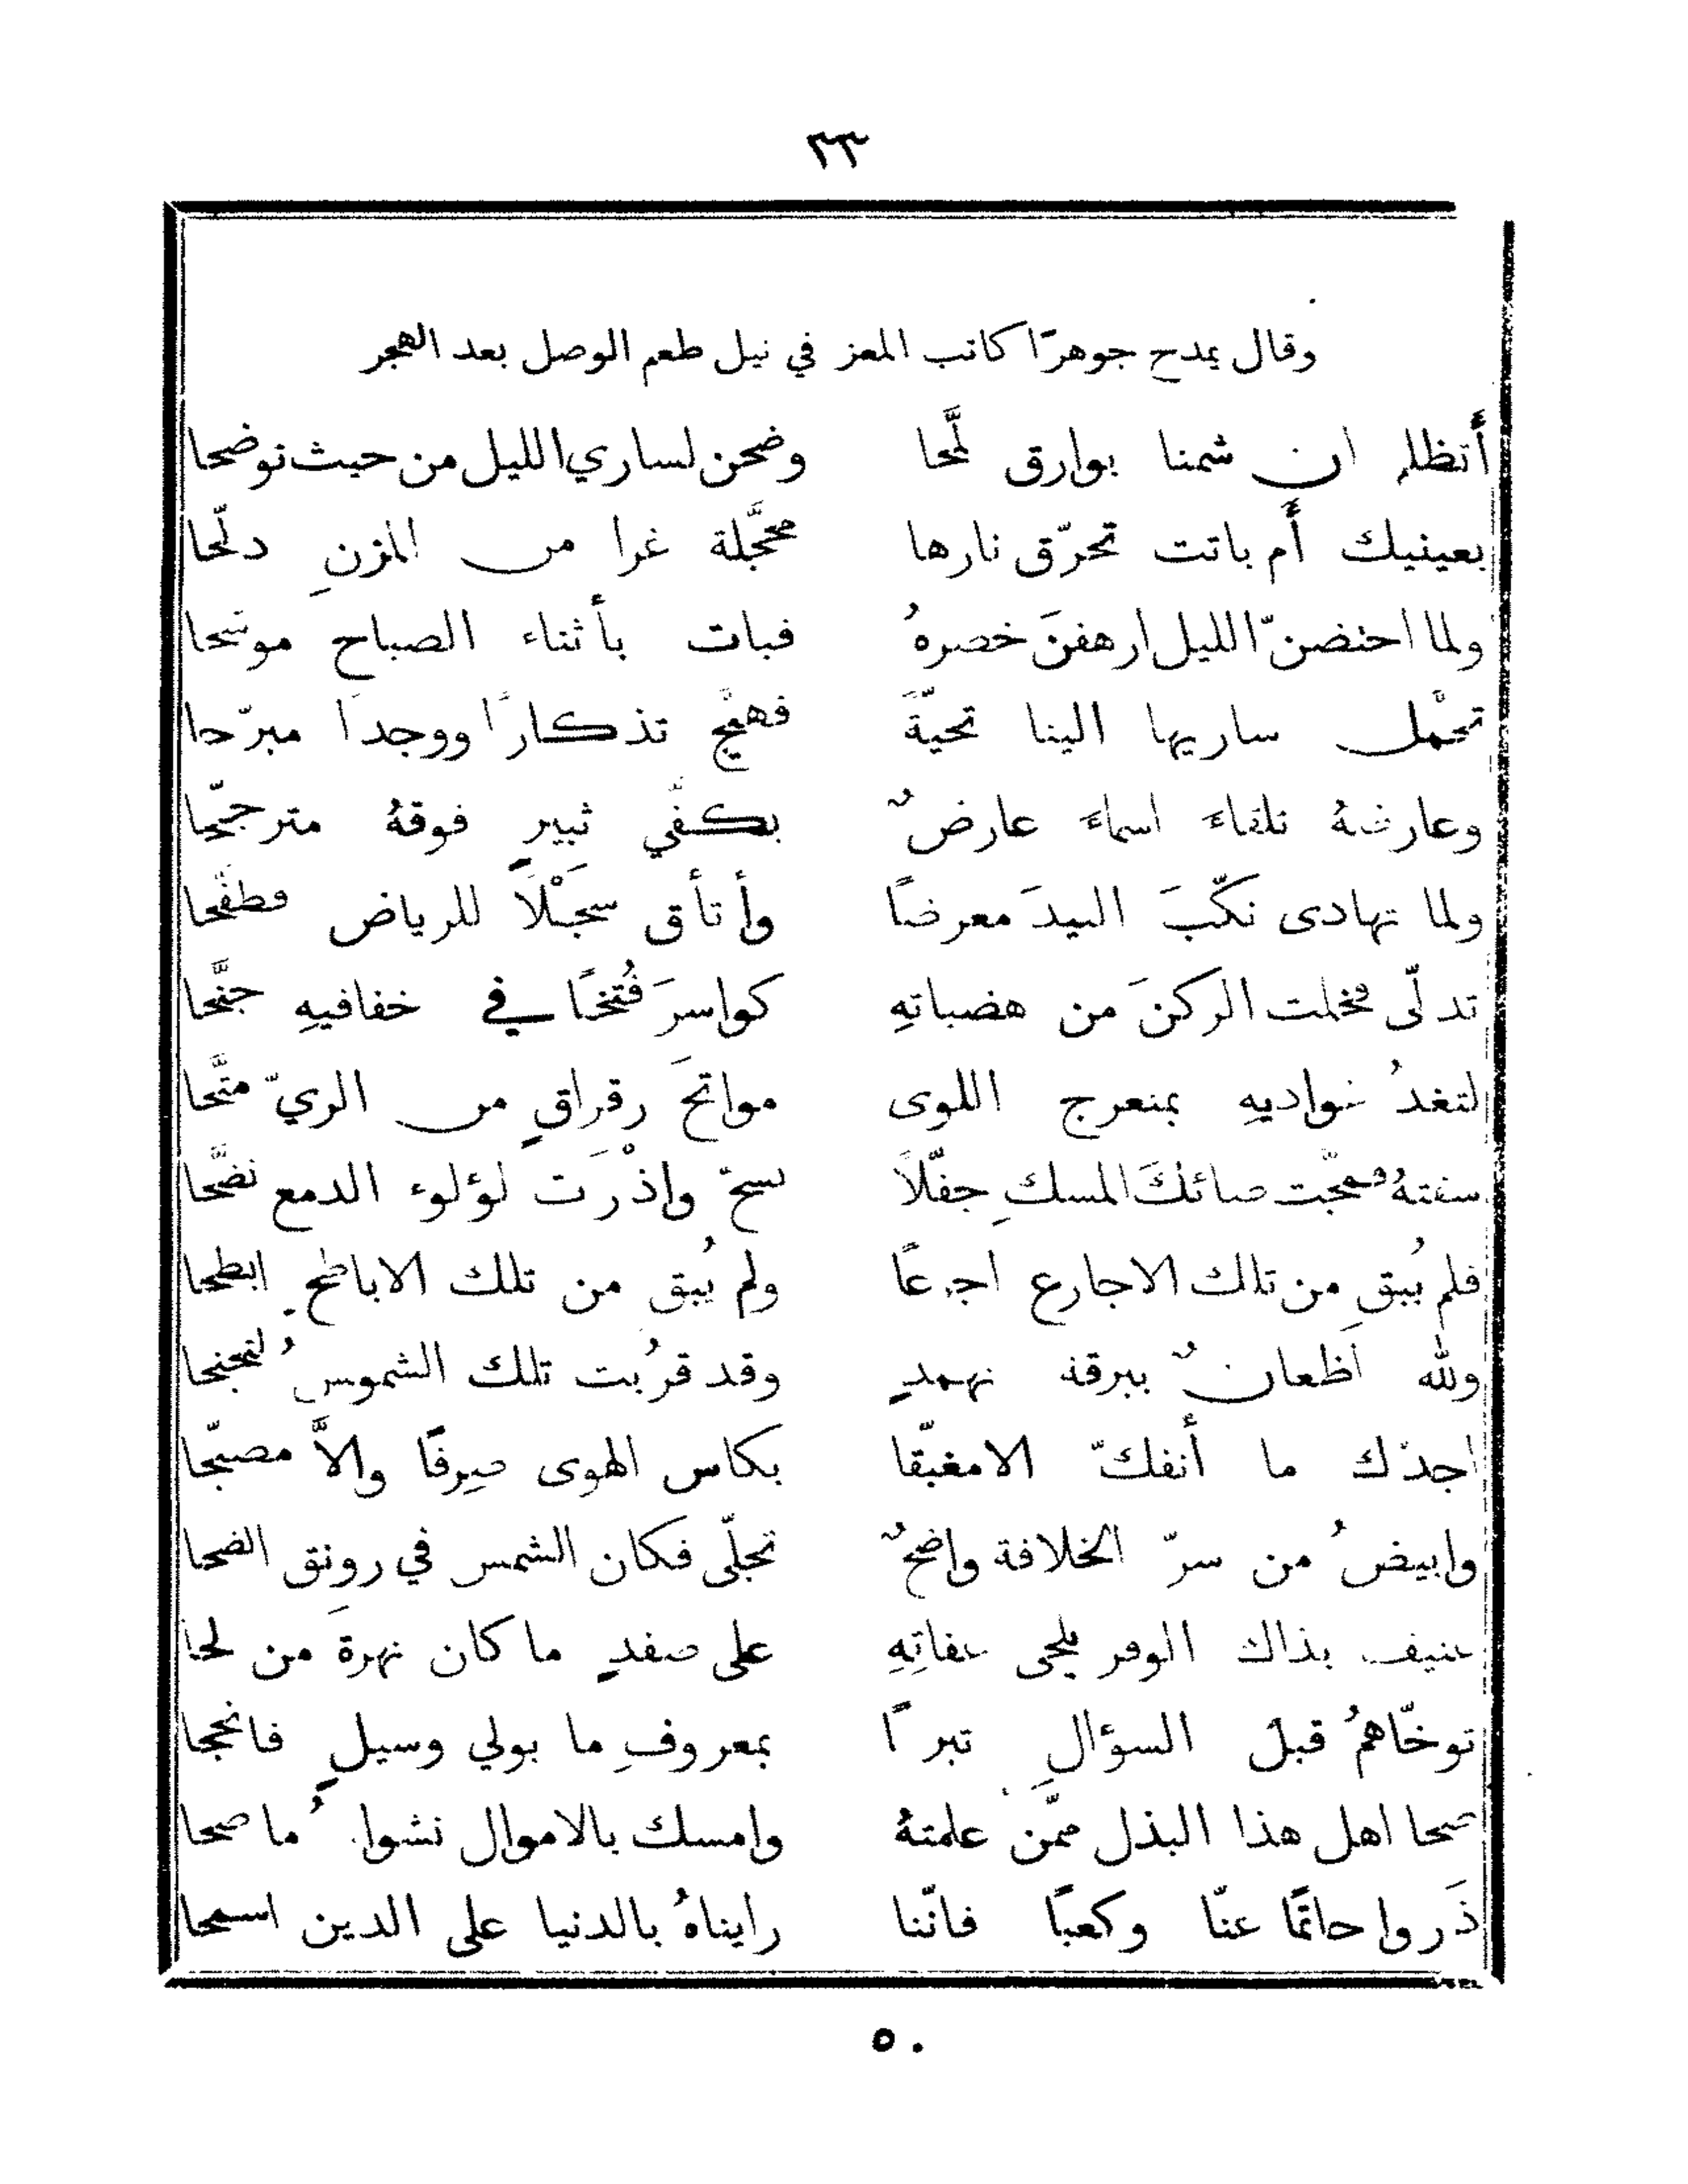 ٣٣
وقال يمدح جوهرًا كاتب المعز في نيل طعم الوصل بعد الهجر
أَتظلم ان شمنا بوارق لمَّحا وضحن لساري الليل من حيث توضحا
بعينيك أَم باتت تحرّق نارها محجَّلة غرا من المزنِ دلّحا
ولما احتضنّ الليل ارهفنَ خصرهُ فبات بأثناء الصباح موشحا
تحمْل ساريها الينا تحيّةً فهيَّج تذكارًا ووجدًا مبرّحا
وعارضهُ تلقاءَ اسماءَ عارضٌ بكفَّي ثبيرٍ فوقهُ مترجّحا
ولما تهادى نكّبَ البيدَ معرضًا وأتأق سَجْلًا للرياض فطفَّحا
تدلّى فخلت الركنَ من هضباتهِ كواسرَ فُتخًا في خفافيهِ جنَّحا
لتغدُ غواديهِ بمنعرج اللوى مواتحَ رقراقٍ من الريّ متَّحا
سقتهُ فمجّت صائكَ المسكِ جفّلًا تسحّ واذْرَت لؤلوء الدمع نضَّحا
فلم يُبقِ من تلك الاجارع اجرعًا ولم يُبق من تلك الاباطحِ ابطحا
ولله اَظعانٌ ببرقة ثهمدٍ وقد قرُبت تلك الشموسُ لتجنحا
اجدّك ما أنفكّ الا مغبّقا بكاس الهوى صِرفًا والاَّ مصبّحا
وابيضُ من سرّ الخلافة واضحٌ تجلّى فكان الشمس في رونق الضحا
عنيف بذاك الوفر يلحى عفاتِهِ على صفدٍ ما كان نهرةَ من لحا
توخّاهمُ قبل السؤالِ تبرعًا بمعروفِ ما بولي وسيلٍ فانججا
صحا اهل هذا البذل ممّن علمتهُ وامسك بالاموال نشوانُ ما صحا
ذَروا حاتمًا عنّا وكعبًا فانّنا رايناهُ بالدنيا على الدين اسمحا
٥٠